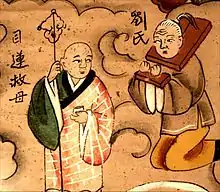 劉氏
目蓮救母